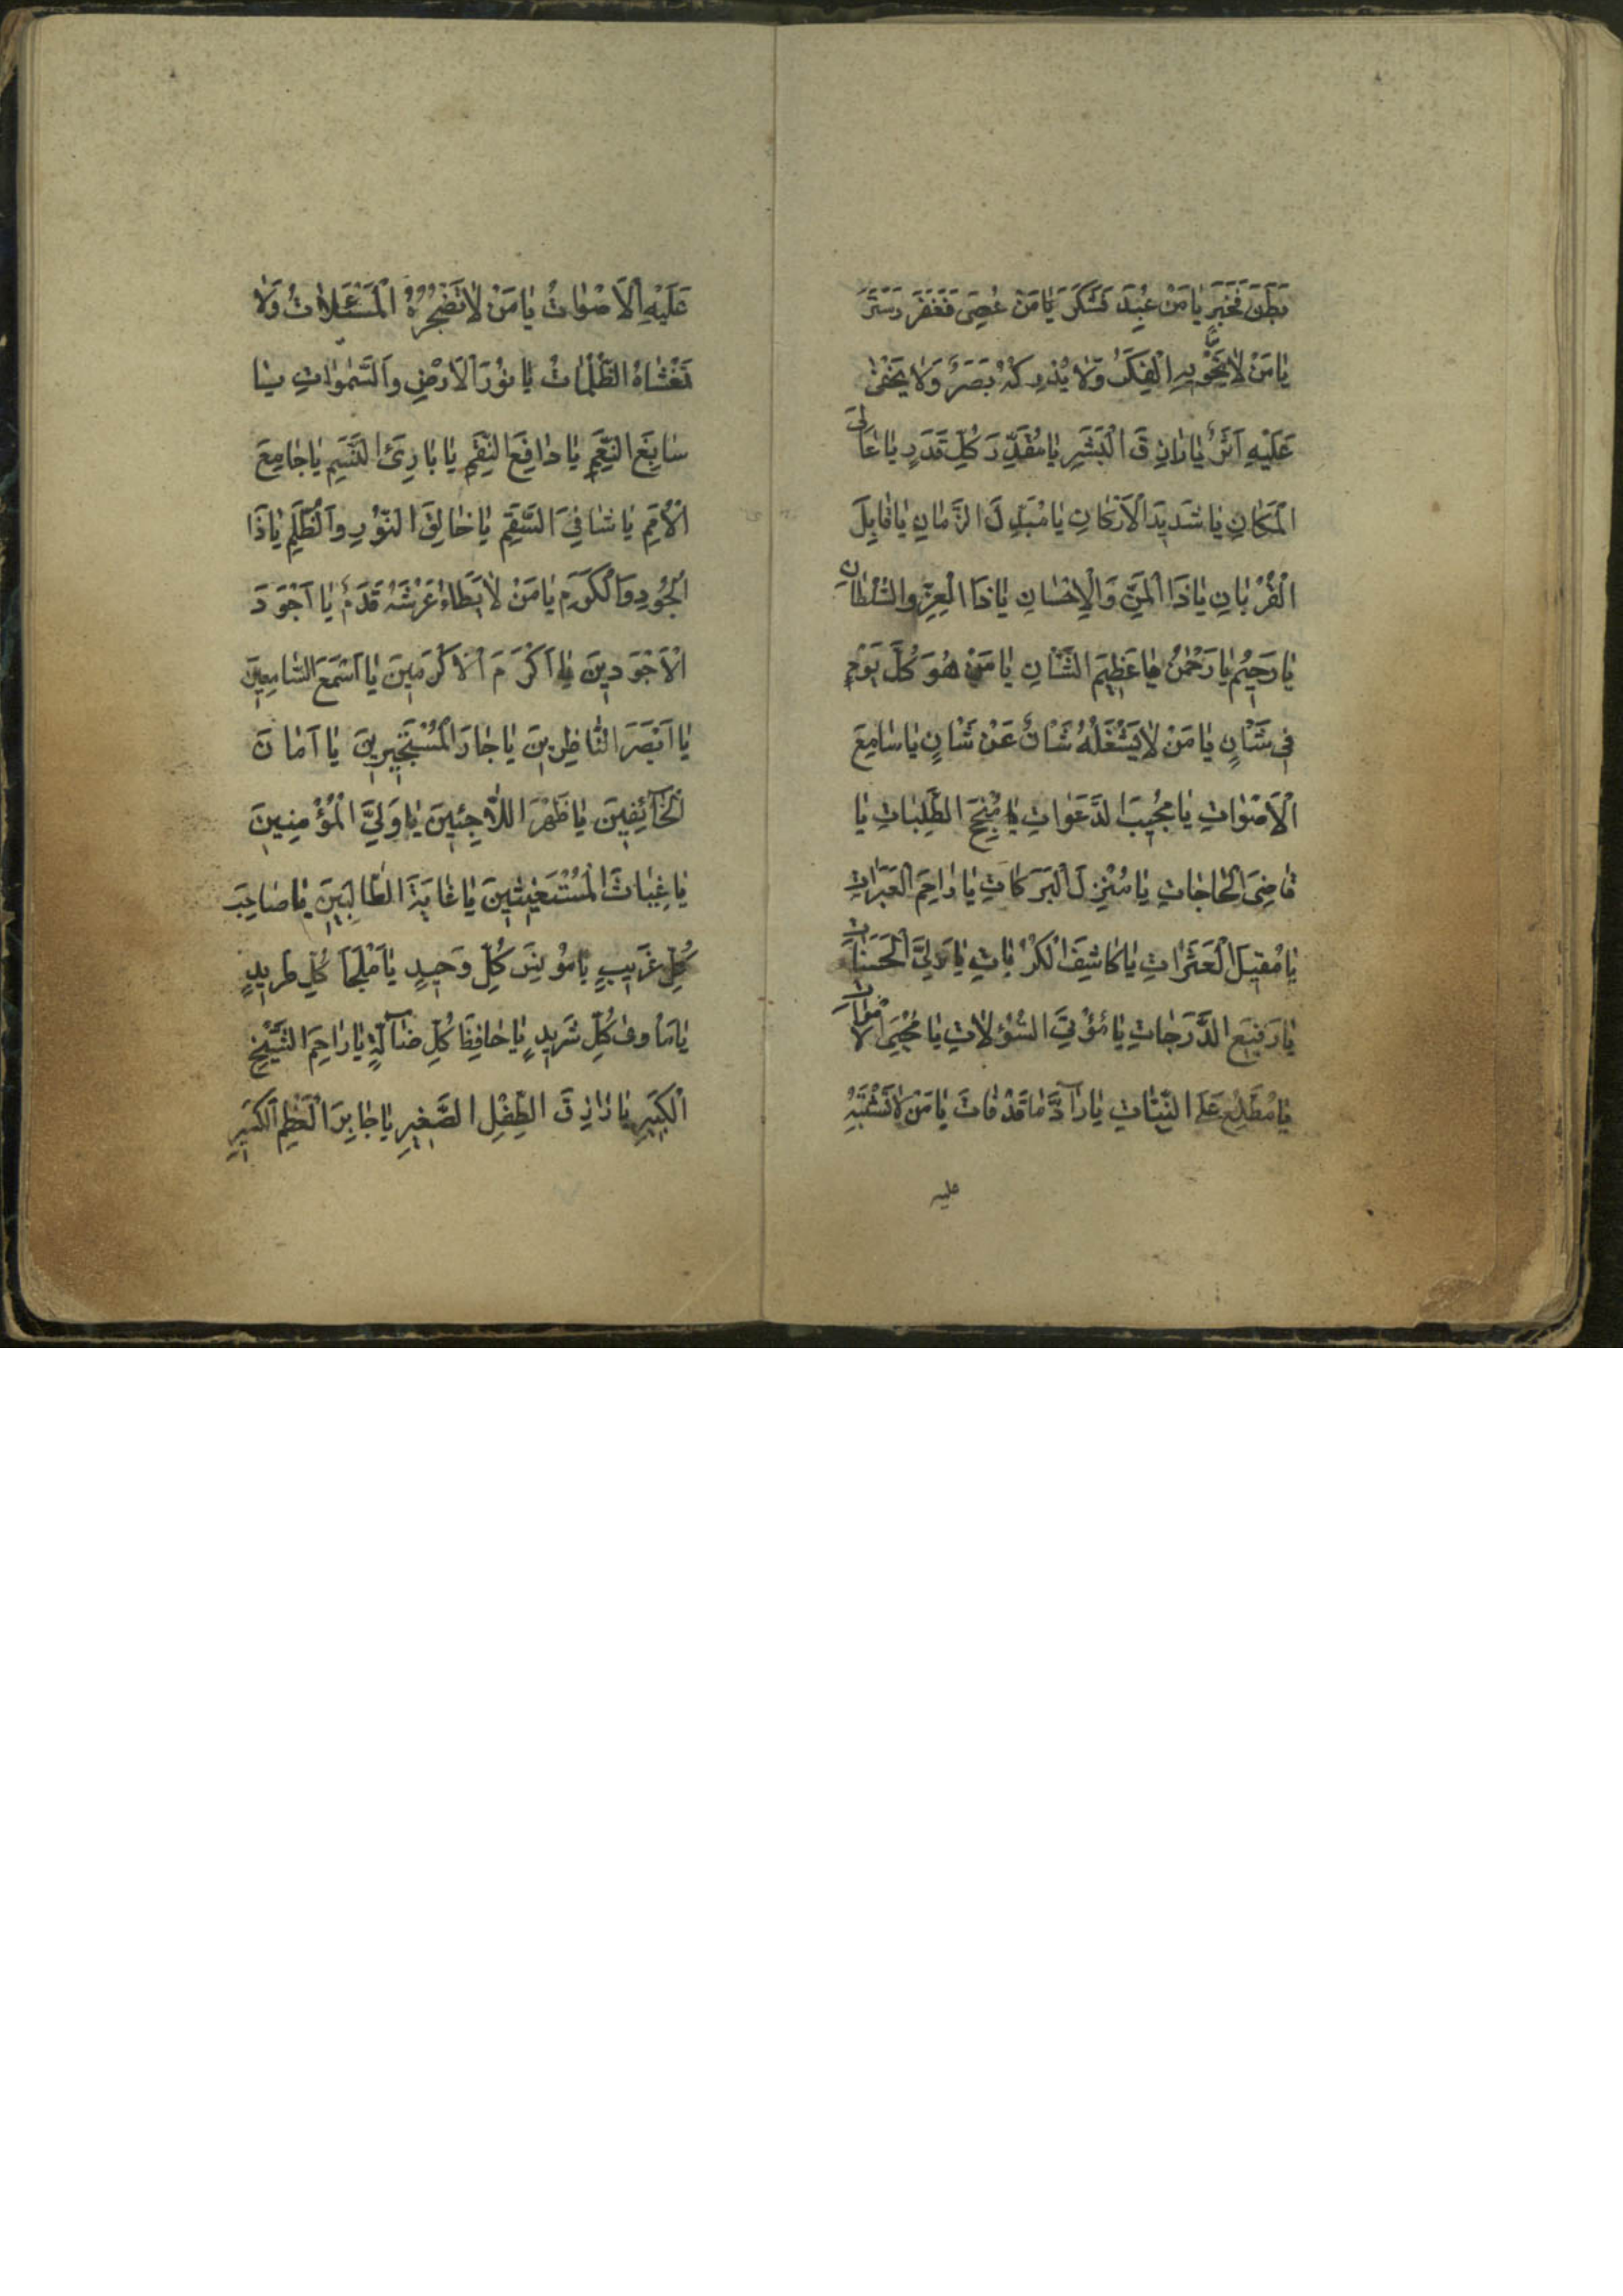 بَطَنَ فَخَبَرَ يَا مَنْ عُبِدَ فَشَكَرَ يَا مَنْ عُصِىَ فَغَفَرَ وَسَتَرَ
يَا مَنْ لَا يَحْوِيهِ الْفِكَرُ وَلَا يُدْرِكُهُ بَصَرٌ وَلَا يَخْفىٰ
عَلَيْهِ اَثَرٌ يَا رَازِقَ الْبَشَرِ يَا مُقَدِّرَ كُلِّ قَدَرٍ يَا عَالِىَ
الْمَكَانِ يَا شَدِيدَ الْاَرْكَانِ يَا مُبَدِّلَ الزَّمَانِ يَا قَابِلَ
الْقُرْبَانِ يَا ذَا الْمَنِّ وَالْاِحْسَانِ يَا ذَا الْعِزِّ وَالسُّلْطَانِ
يَا رَحِيمُ يَا رَحْمٰنُ يَا عَظِيمَ الشَّانِ يَا مَنْ هُوَ كُلَّ يَوْمٍ
فِى شَانٍ يَا مَنْ لَا يَشْغَلُهُ شَانٌ عَنْ شَانٍ يَا سَامِعَ
الْاَصْوَاتِ يَا مُجِيبَ الدَّعَوَاتِ يَا مُنْجِحَ الطَّلِبَاتِ يَا
قَاضِىَ الْحَاجَاتِ يَا مُنْزِلَ الْبَرَكَاتِ يَا رَاحِمَ الْعَبَرَاتِ
يَا مُقِيلَ الْعَثَرَاتِ يَا كَاشِفَ الْكُرُبَاتِ يَا وَلِىَّ الْحَسَنَاتِ
يَا رَفِيعَ الدَّرَجَاتِ يَا مُؤْتِىَ السُّؤْلَاتِ يَا مُحْيِىَ الْاَمْوَاتِ
يَا مُطَّلِعُ عَلَى النِّيَّاتِ يَا رَآدَّ مَا قَدْ فَاتَ يَا مَنْ لَا تَشْتَبِهُ
عليه
عَلَيْهِ الْاَصْوَاتُ يَا مَنْ لَا تُضْجِرُهُ الْمَسْئَلَاتُ وَلَا
تَغْشَاهُ الظُّلُمَاتُ يَا نُورَ الْاَرْضِ وَالسَّمٰوَاتِ يَا
سَابِغَ النِّعَمِ يَا دَافِعَ النِّقَمِ يَا بَارِئَ النَّسَمِ يَا جَامِعَ
الْاُمَمِ يَا شَافِىَ السَّقَمِ يَا خَالِقَ النُّورِ وَالظُّلَمِ يَا ذَا
الْجُودِ وَالْكَرَمِ يَا مَنْ لَا يَطَاءُ عَرْشَهُ قَدَمٌ يَا اَجْوَدَ
الْاَجْوَدِينَ يَا اَكْرَمَ الْاَكْرَمِينَ يَا اَسْمَعَ السَّامِعِينَ
يَا اَبْصَرَ النَّاظِرِينَ يَا جَارَ الْمُسْتَجِيرِينَ يَا اَمَانَ
الْخَآئِفِينَ يَا ظَهْرَ اللَّاجِئِينَ يَا وَلِىَّ الْمُؤْمِنِينَ
يَا غِيَاثَ الْمُسْتَغِيثِينَ يَا غَايَةَ الطَّالِبِينَ يَا صَاحِبَ
كُلِّ غَرِيبٍ يَا مُونِسَ كُلِّ وَحِيدٍ يَا مَلْجَاَ كُلِّ طَرِيدٍ
يَا مَاْوىٰ كُلِّ شَرِيدٍ يَا حَافِظَ كُلِّ ضَآلَّةٍ يَا رَاحِمَ الشَّيْخِ
الْكَبِيرِ يَا رَازِقَ الطِّفْلِ الصَّغِيرِ يَا جَابِرَ الْعَظْمِ الْكَسِيرِ